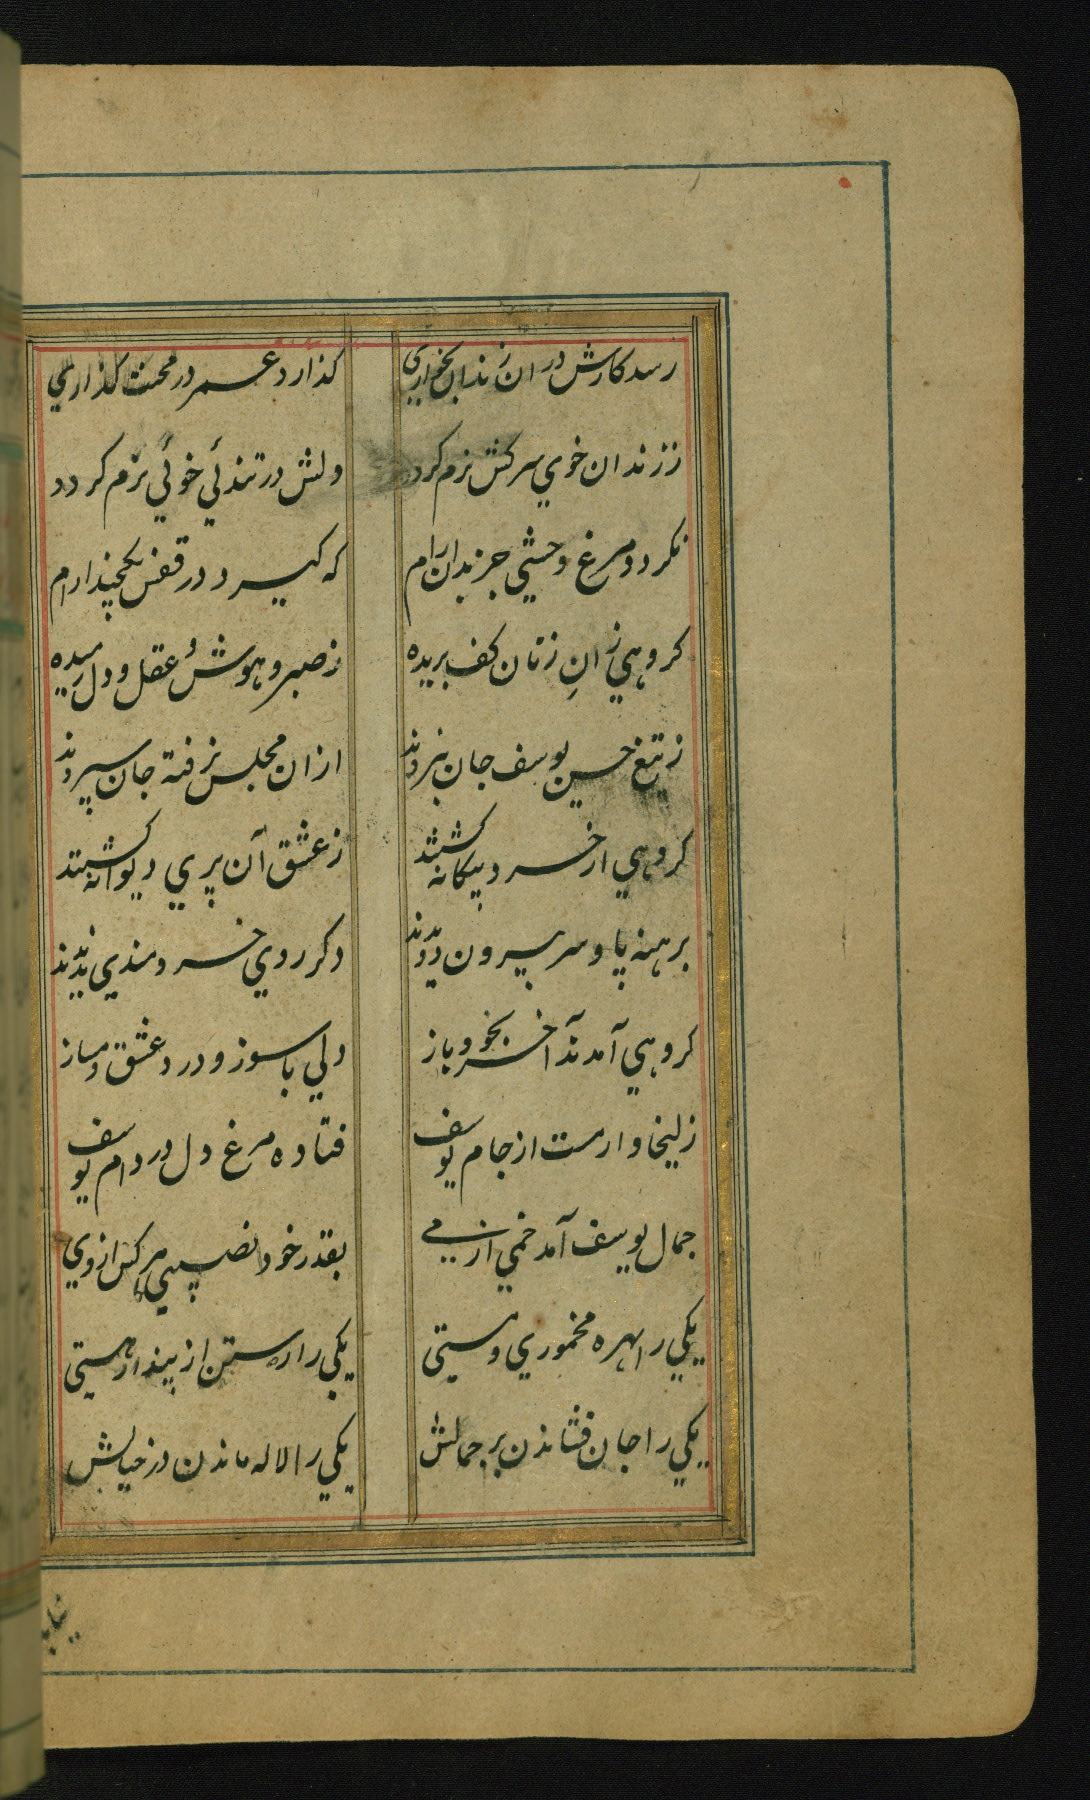 رسد کارش در ان زندان بخواری گذارد عمر در محنت گذاری
ز زندان خوی سرکش نرم گردد دلش در تندئی خوئی نرم گردد
نکردد مرغ وحشی جز بدان رام که گیرد در قفس یکچند ارام
کروهی زانِ زنان کف بریده ز صبر و هوش و عقل و دل رمیده
ز تیغ حسن یوسف جان نبردند ازان مجلس نرفته جان سپردند
کروهی از خرد بیکانه کشتند ز عشق آن پری دیوانه کشتند
برهنه پا و سر بیرون دویدند دکر روی خردمندی ندیدند
کروهی آمدند آخر بخود باز ولی با سوز و درد عشق دمساز
زلیخا وار مست از جام یوسف فتاده مرغ دل در دام یوسف
جمال یوسف آمد خمی از می بقدر خود نصیبی هر کس از وی
یکی را بهره مخموری و مستی یکی را رستن از پندار هستی
یکی را جان فشاندن بر جمالش یکی را لاله ماندن در خیالش